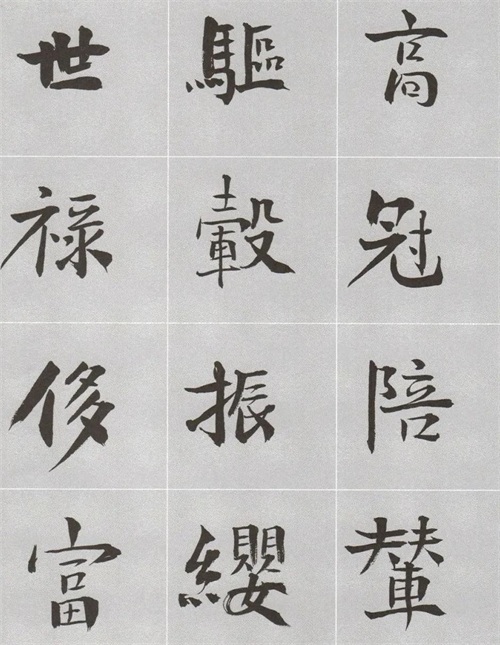 高冠陪輦
驅轂振纓
世禄侈富